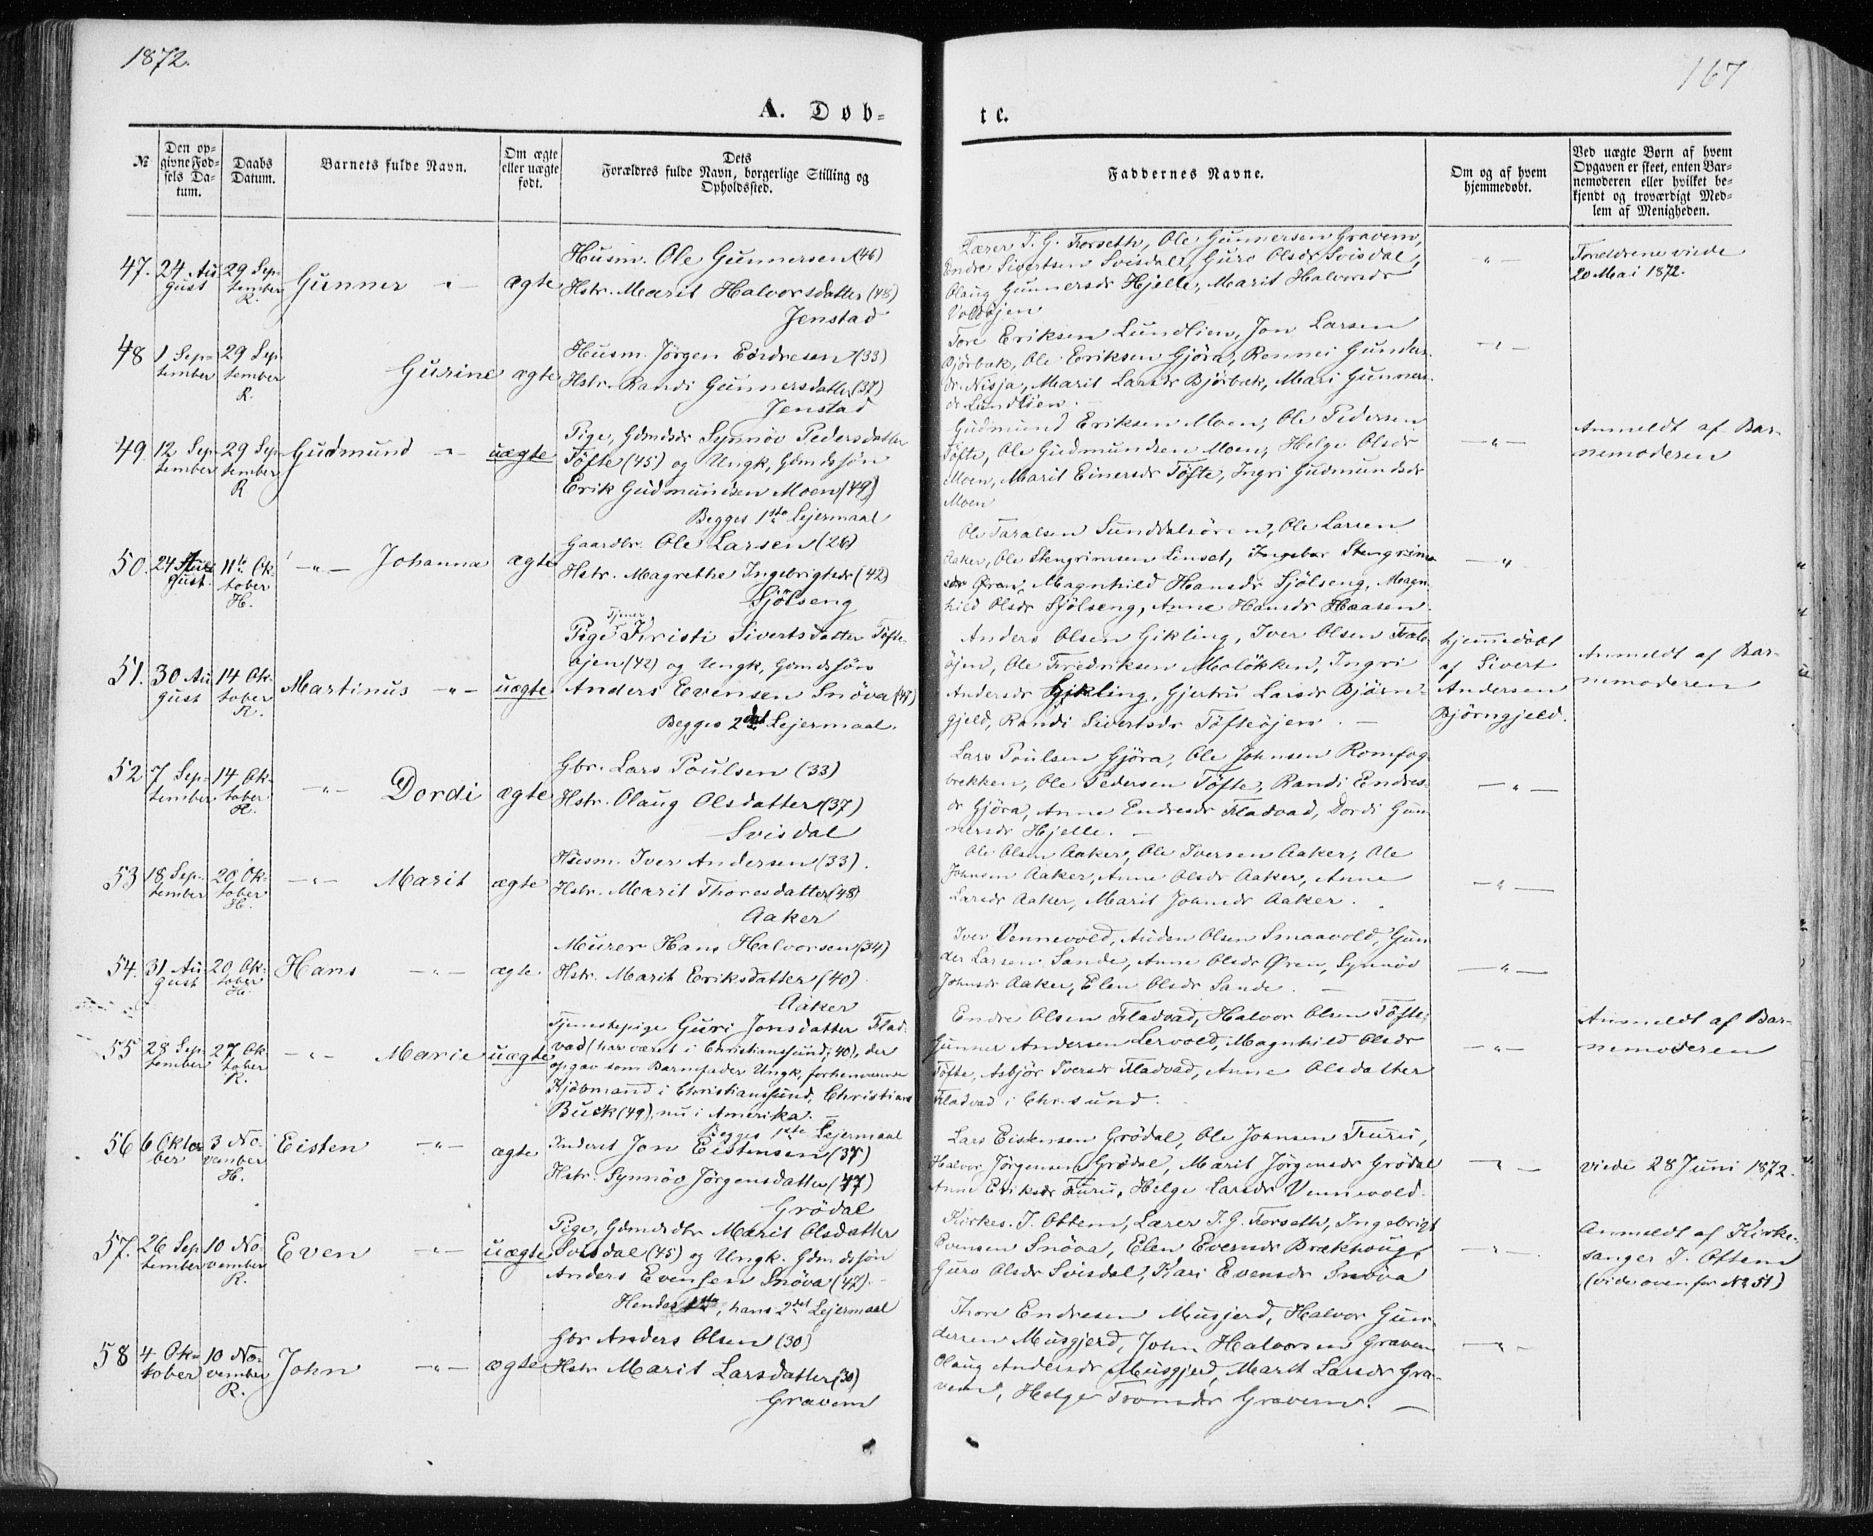 1872.
167
A. Døb-
te.
№
Den op-
givne Fød-
sels Da-
tum.
Daabs
Datum.
Barnets fulde Navn.
Om ægte
eller uægte
født.
Dets
Forældres fulde Navn, borgerlige Stilling og
Opholdssted.
Faddernes Navne.
Om og af hvem
hjemmedøbt.
Ved uægte Børn af hvem
Opgaven er skeet, enten Bar-
nemoderen eller hvilket be-
kjendt og troværdigt Med-
lem af Menigheden.
47. 24 Au
gust
29 Sep-
tember
R.
Gunner " ægte
Husm. Ole Gunnersen (46)
Hstr. Marit Halvorsdatter (48)
Jenstad
Lærer T. G. Forseth, Ole Gunnersen Gravem,
Endre Sivertsen Svisdal, Guro Olsdr Svisdal,
Olaug Gunnersdr Hjelle, Marit Halvorsdr
Voldøjen
— " —
Foreldrene viede
20 Mai 1872.
48 1 Sep-
tember
29 Sep
tember
R.
Gurine ægte
Husm. Jörgen Endresen (33)
Hstr. Randi Gunnersdatter (37)
Jenstad
Tore Eriksen Lundlien, Jon Larsen
Björbæk, Ole Eriksen Gjöra, Rennei Gunders-
dr. Nisja, Marit Larsdr Björbæk, Mari Gunners-
dr Lundlien. —
— " —
49. 12 Sep-
tember
29 Sep
tember
R
Gudmund — " — uægte
Pige, Gdmdsdr Synnöv Pedersdatter
Töfte (45) og Ungk, Gdmdssön
Erik Gudmundsen Moen (49)
Begges 1ste Lejermaal
Gudmund Eriksen Moen, Ole Pedersen
Töfte, Ole Gudmundsen Moen, Helge Olsdr
Moen, Marit Einersdr Töfte, Ingri Gudmundsdr
Moen
— " —
Anmeldt af Bar-
nemoderen
50. 24 Au
gust.
11te Ok-
tober
H.
— " — Johanna ægte
Gaardbr. Ole Larsen (26)
Hstr. Magrethe Ingebrigtsdr (42)
Sjölseng
Ole Taralsen Sunddalsören, Ole Larsen
Aaker, Ole Stengrimsen Linset, Ingebor Stengrims
sdr Øren, Magnhild Hansdr Sjölseng, Magn
hild Olsdr Sjölseng, Anne Hansdr Haasen.
— "
51. 30 Au
gust
14 Ok-
tober
R.
Martinus — " — uægte
Tjener
Pige Kristi Sivertsdatter Töfte-
öjen (42) og Ungk, Gdmdssön
Anders Evensen Snöva (47)
Begges 2det Lejermaal.
Anders Olsen Gikling, Iver Olsen
öjen, Ole Fredriksen Molökken, Ingri
Andersdr Gjikling, Gjertru Larsdr Björn-
gjeld, Randi Sivertsdr Töfteöjen. —
hjemmedöbt
af Sivert
Andersen
Björngjeld.
Anmeldt af Bar-
nemoderen
52 7 Sep-
tember
14 Ok-
tober
R.
— " — Dordi ægte
Gbr. Lars Poulsen (33)
Hstr. Olaug Olsdatter (37)
Svisdal
Lars Poulsen Gjöra, Ole Johnsen Romfog
brekken, Ole Pedersen Töfte, Randi Endres-
dr Gjöra, Anne Endresdr Fladvad, Dordi Gun
nersdr Hjelle. —
— " —
53 18 Sep-
tember
20 Ok-
tober
H.
— " — Marit ægte
Husm. Iver Andersen (33).
Hstr. Marit Thoresdatter (48)
Aaker
Ole Olsen Aaker, Ole Iversen Aaker, Ole
Johnsen Aaker, Anne Olsdr Aaker, Anne
Larsdr Aaker, Marit Johnsdr Aaker.
— " —
54. 31 Au
gust
20 Ok-
tober
H.
Hans — " — ægte
Murer Hans Halvorsen (34)
Hstr. Marit Eriksdatter (40)
Aaker
Iver Vennevold, Auden Olsen Smaavold, Gun
der Larsen Sande, Anne Olsdr Øren, Synnöv
Johnsdr Aaker, Elen Olsdr Sande. —
— " —
55 28 Sep-
tember
27 Ok-
tober
R.
— " — Marie uægte
Tjenestepige Guri Jonsdatter Flad-
vad (har været i Christianssund, 40), der
opgav som Barnefader Ungk, forhenværende
Kjöbmand i Christianssund, Christians
Buck (49), nu i Amerika. —
Begges 1ste Lejermaal
Endre Olsen Fladvad, Halvor Olsen Töfte,
Gunner Andersen Lervold, Magnhild Olsdr
Töfte, Asbjör Iversdr Fladvad, Anne Olsdatter
Fladvad i Chr.sund.
— " —
Anmeldt af Bar-
nemoderen
56 6 Okto
ber
3 No-
vember
H.
Eisten — " — ægte
Inderst Jon Eistensen (37)
Hstr. Synnöv Jörgensdatter (47)
Grödal
Lars Eistensen Grödal, Ole Johnsen Furu,
Halvor Jörgensen Grödal, Marit Jörgensdr Grödal
Anne Eriksdr Furu, Helge Larsdr Vennevold.
— " —
viede 28 Juni 1872.
57. 26 Sep
tember
10 No-
vember
R.
Even — " — uægte
Pige, Gdmdsdtr Marit Olsdatter
Svisdal (45) og Ungk. Gdmdssön
Anders Evensen Snöva (47). —
Hendes 1ste, hans 2det Lejermaal
Kirkes. I. Ottem, Lærer T. G. Forseth, Ingebrigt
Evensen Snöva, Elen Evensdr Brækhoug,
Guro Olsdr Svisdal, Kari Evensdr Snöva
— " —
Anmeldt af Kirke-
sanger I. Ottem
(vide ovenfor № 51)
58 4 Ok-
tober
10 No-
vember
R.
John — " — ægte
Gbr Anders Olsen (30)
Hstr Marit Larsdatter (30)
Gravem
Thore Endresen Musgjerd, Halvor Gun
dersen Musgjerd, John Halvorsen Gravem
Olaug Andersdr Musgjerd, Marit Larsdr Gra-
vem, Helge Tronsdr Gravem. —
— " —